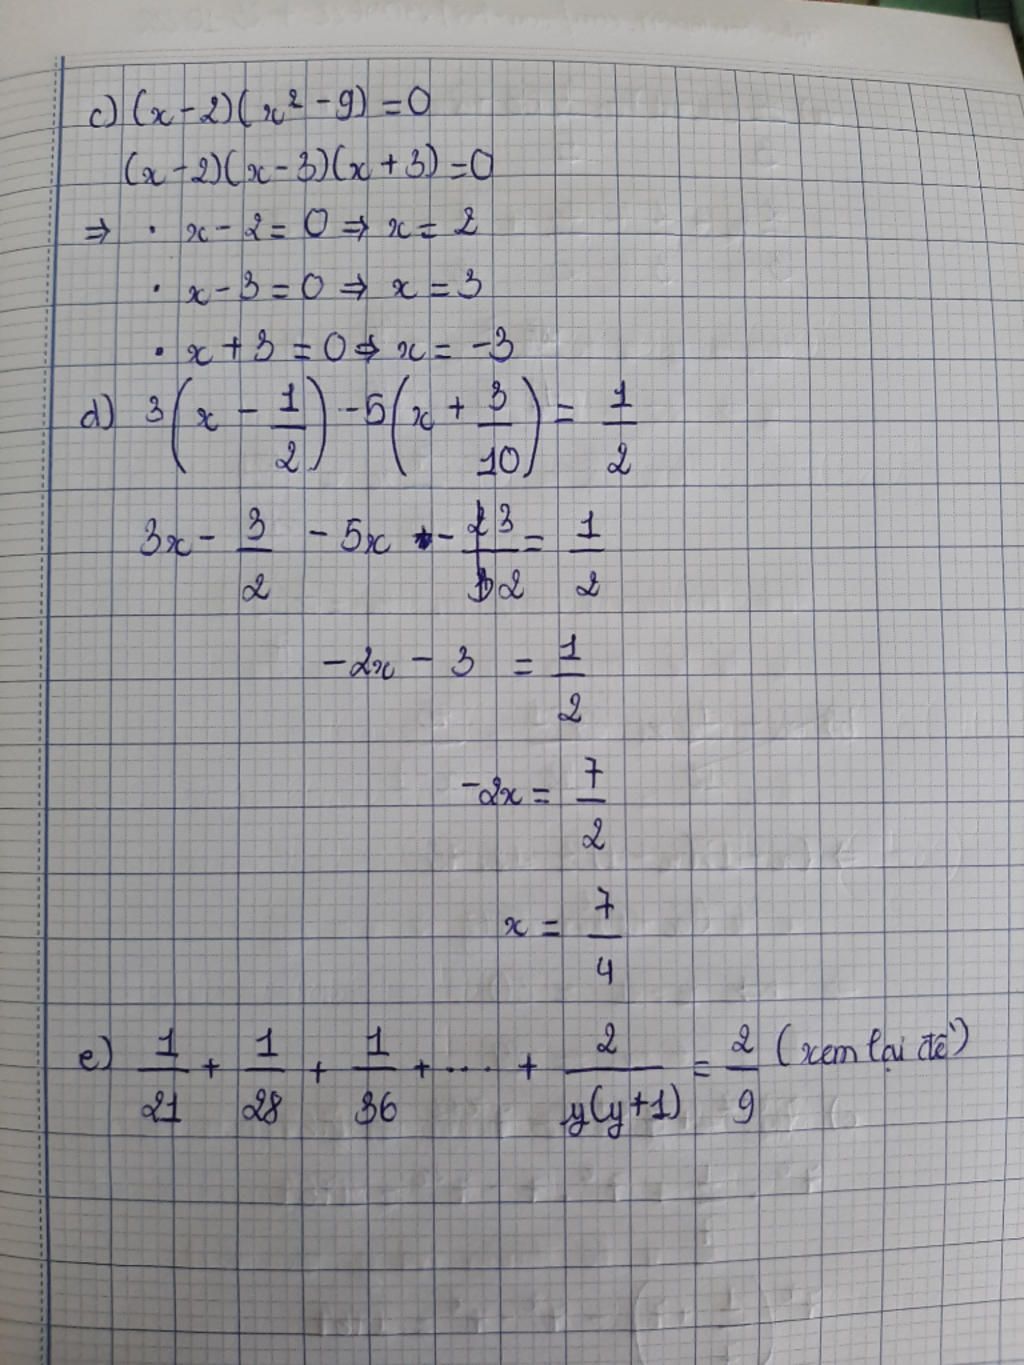 c) (x-2)(x² -9) = 0
(x-2)(x-3)(x+3) = 0
⇒ · x-2 = 0 ⇒ x = 2
· x-3 = 0 ⇒ x = 3
· x+3 = 0 ⇒ x = -3
d) 3(x - 1/2) -5(x + 3/10) = 1/2
3x - 3/2 - 5x - 3/2 = 1/2
-2x - 3 = 1/2
-2x = 7/2
x = 7/4
e) 1/21 + 1/28 + 1/36 + .... + 2/y(y+1) = 2/9 (xem lại đề)